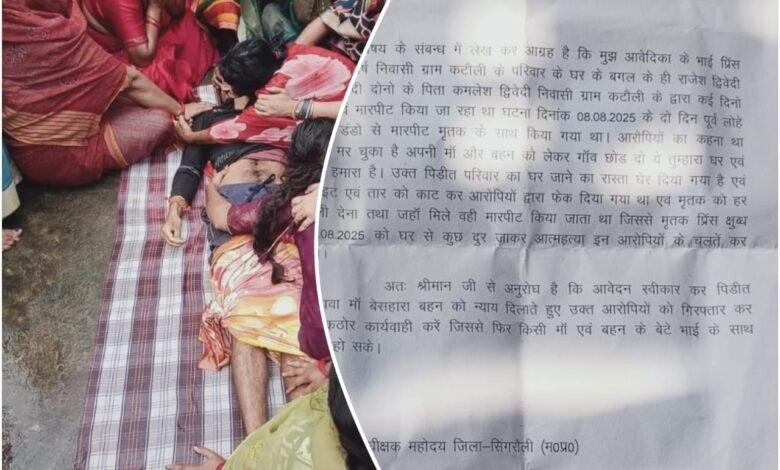 षय के संबन्ध में लेख कर आग्रह है कि मुझ आवेदिका के भाई प्रिंस
र्ष निवासी ग्राम कटौली के परिवार के घर के बगल के ही राजेश द्विवेदी
दी दोनो के पिता कमलेश द्विवेदी निवासी ग्राम कटौली के द्वारा कई दिनो
मारपीट किया जा रहा था घटना दिनांक 08.08.2025 के दो दिन पूर्व लोहे
डंडो से मारपीट मृतक के साथ किया गया था। आरोपियों का कहना था
मर चुका है अपनी माँ और बहन को लेकर गाँव छोड दो ये तुम्हारा घर एवं
हमारा है। उक्त पिड़ीत परिवार का घर जाने का रास्ता घेर दिया गया है एवं
इट एवं तार को काट कर आरोपियों द्वारा फेक दिया गया था एवं मृतक को हर
देना तथा जहाँ मिले वही मारपीट किया जाता था जिससे मृतक प्रिंस क्षुब्ध
.08.2025 को घर से कुछ दुर जाकर आत्महत्या इन आरोपियों के चलतें कर
।
अतः श्रीमान जी से अनुरोध है कि आवेदन स्वीकार कर पिडीत
वा माँ बेसहारा बहन को न्याय दिलाते हुए उक्त आरोपियों को गिरफ्तार कर
कठोर कार्यवाही करें जिससे फिर किसी माँ एवं बहन के बेटे भाई के साथ
हो सके।
धीक्षक महोदय जिला–सिंगरौली (म०प्र०)